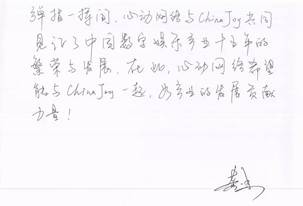 弹指一挥间，心动网络与ChinaJoy共同
见证了中国数字娱乐产业十五年的
繁荣与发展。在此，心动网络希望
能与ChinaJoy一起，为产业的发展贡献
力量！